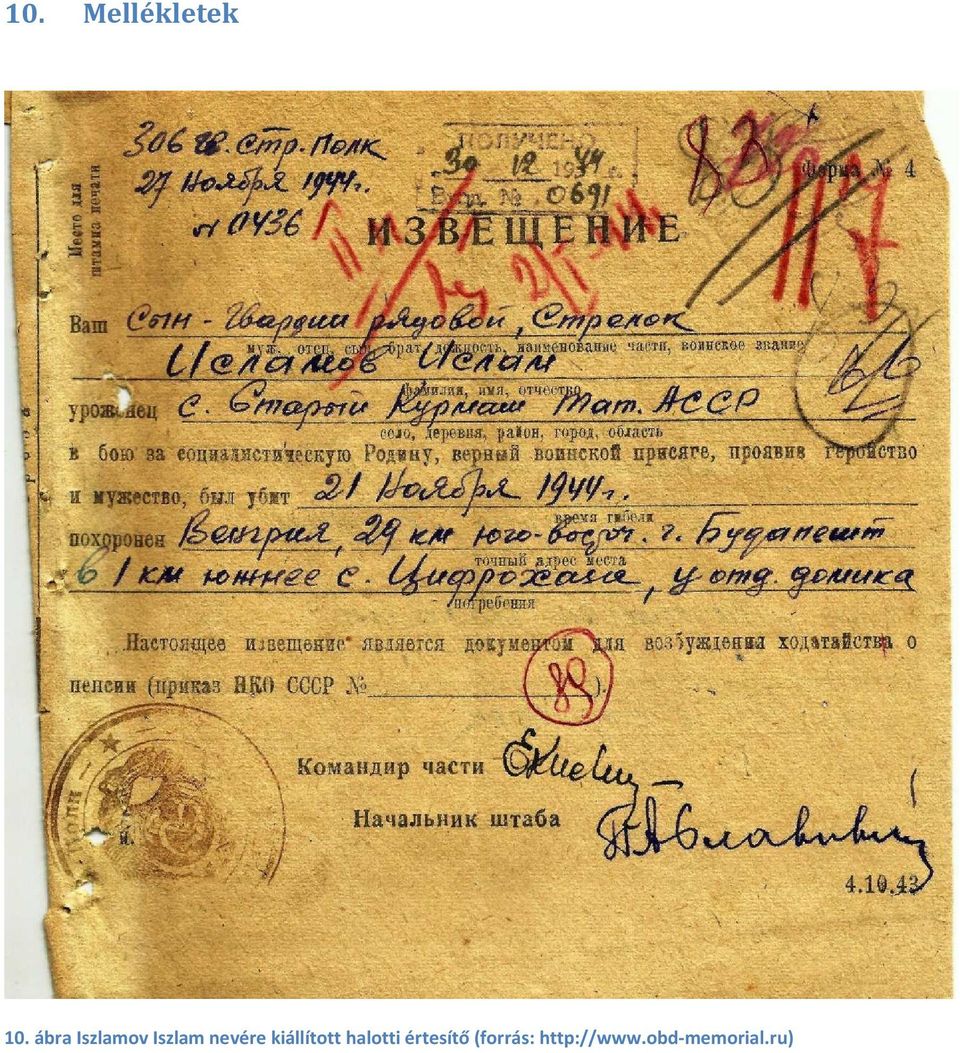 10. Mellékletek
306 гв. стр. полк
27 Ноября 1944 г.
№ 0436
Место для
штампа печати
ПОЛУЧЕНО
30 12 1944 г.
Вход. № 0691
83
Форма № 4
117
ИЗВЕЩЕНИЕ
Ваш Сын - Гвардии рядовой, Стрелок
муж, отец, сын, брат, должность, наименование части, воинское звание
Исламов Ислам
фамилия, имя, отчество
уроженец с. Старый Курмаш Тат. АССР
село, деревня, район, город, область
в бою за социалистическую Родину, верный воинской присяге, проявив геройство
и мужество, был убит 21 Ноября 1944 г.
время гибели
похоронен Венгрия, 29 км юго-восточ. г. Будапешт
точный адрес места
в 1 км южнее с. Цифрохаза, у отд. домика
погребения
Настоящее извещение является документом для возбуждения ходатайства о
пенсии (приказ НКО СССР № ).
89
Командир части
Начальник штаба
4.10.43
10. ábra Iszlamov Iszlam nevére kiállított halotti értesítő (forrás: http://www.obd-memorial.ru)